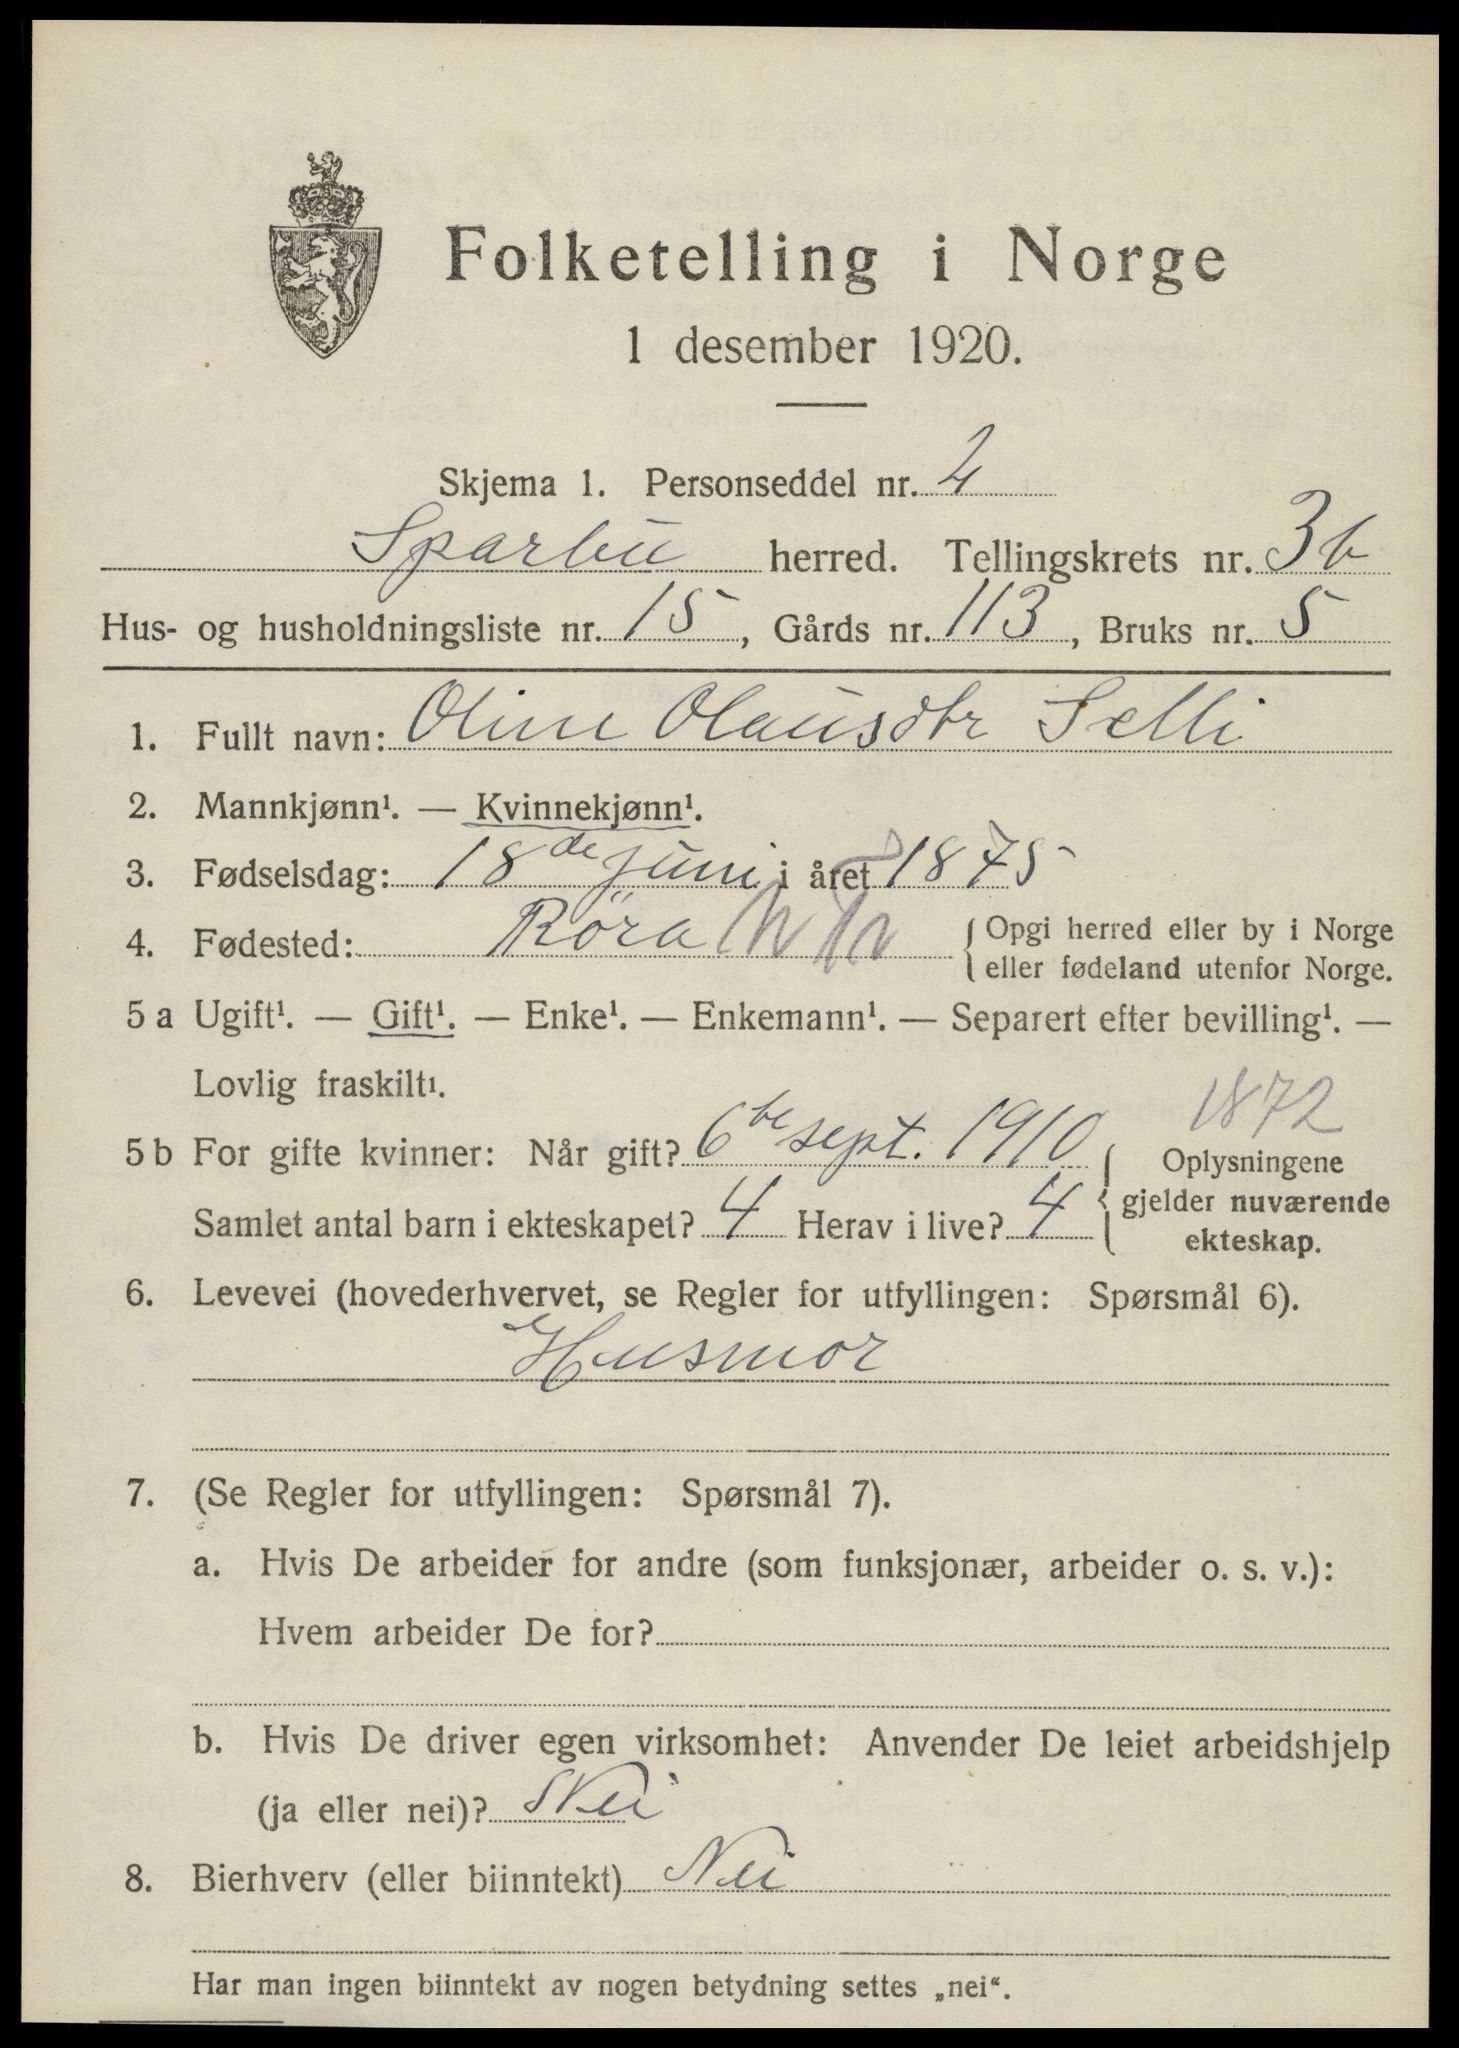 Folketelling i Norge
1 desember 1920.
Skjema 1. Personseddel nr. 4
Sparbu herred. Tellingskrets nr. 3b
Hus- og husholdningsliste nr. 15, Gårds nr. 113, Bruks nr. 5
1. Fullt navn: Oline Olausdtr Selli
2. Mannkjønn¹. — Kvinnekjønn¹.
3. Fødselsdag: 18de juni i året 1875
4. Fødested: Röra {Opgi herred eller by i Norge
eller fødeland utenfor Norge.
5 a Ugift¹. — Gift¹. — Enke¹. — Enkemann¹. — Separert efter bevilling¹. —
Lovlig fraskilt¹.
1872
5 b For gifte kvinner: Når gift? 6te sept. 1910 {Oplysningene
gjelder nuværende
ekteskap.
Samlet antal barn i ekteskapet? 4 Herav i live? 4
6. Levevei (hovederhvervet, se Regler for utfyllingen: Spørsmål 6).
Husmor
7. (Se Regler for utfyllingen: Spørsmål 7).
a. Hvis De arbeider for andre (som funksjonær, arbeider o. s. v.):
Hvem arbeider De for?
b. Hvis De driver egen virksomhet: Anvender De leiet arbeidshjelp
(ja eller nei)? Nei
8. Bierhverv (eller biinntekt) Nei
Har man ingen biinntekt av nogen betydning settes „nei“.